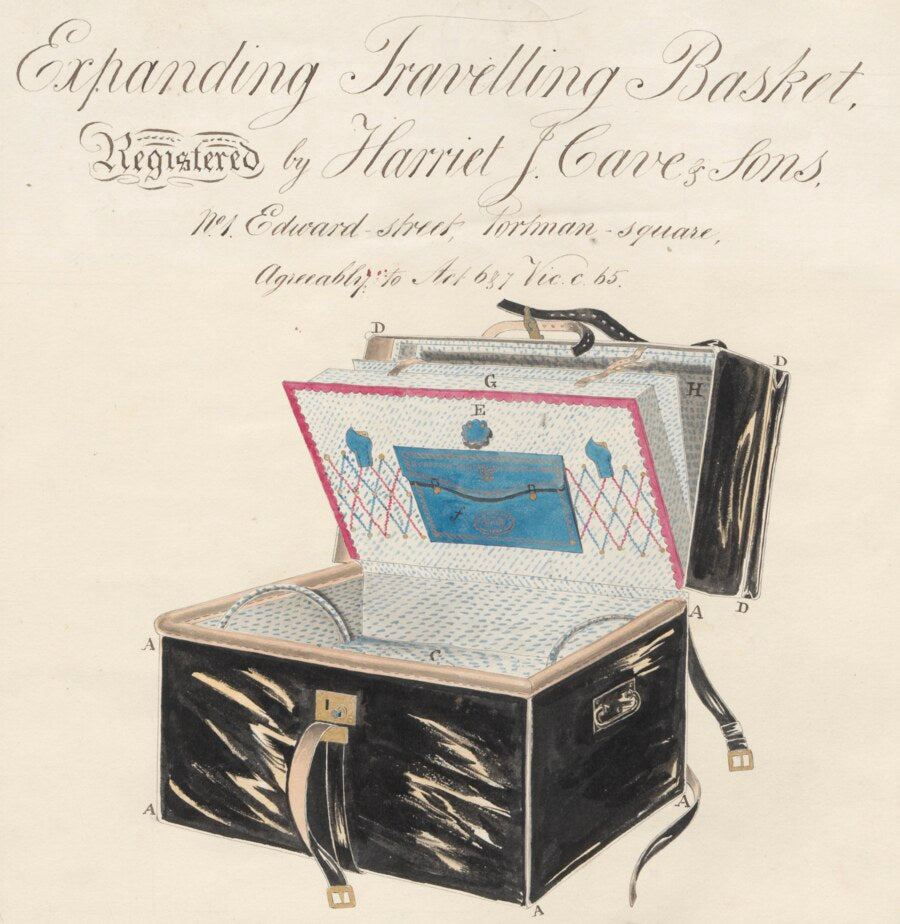 Expanding Travelling Basket,
Registered by Harriet J. Cave & Sons,
No 1. Edward-street, Portman-square,
Agreeably to Act 6 & 7 Vic. c. 65.
D
D
G
H
E
f
D
A
A
C
A
A
A